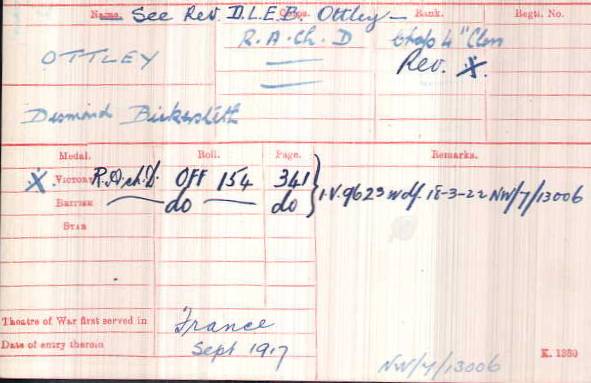 Name. See Rev D.L.E.B. Ottley Corps. Rank. Regtl. No.
R.A.Ch.D Chap 4" Class
OTTLEY Rev. X.
Desmond Bickersteth
Medal. Roll. Page. Remarks.
X. VICTORY R.A.Ch.D. OFF 154 341
BRITISH — do — do I.V. 9623 wdf. 18-3-22 NW/7/13006
STAR
Theatre of War first served in France
Date of entry therein Sept 1917
NW/7/13006 K. 1380